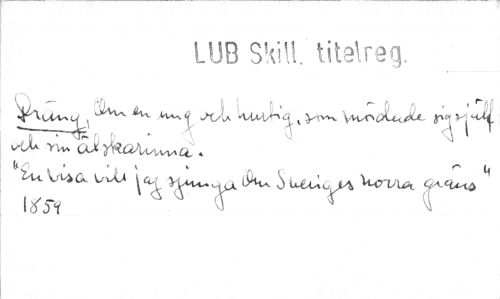 LUB Skill. titelreg.
Dräng, Om en ung och hurtig, som mördade sig själf
och sin älskarinna.
"En visa vill jag sjunga Om Sveriges norra gräns"
1859